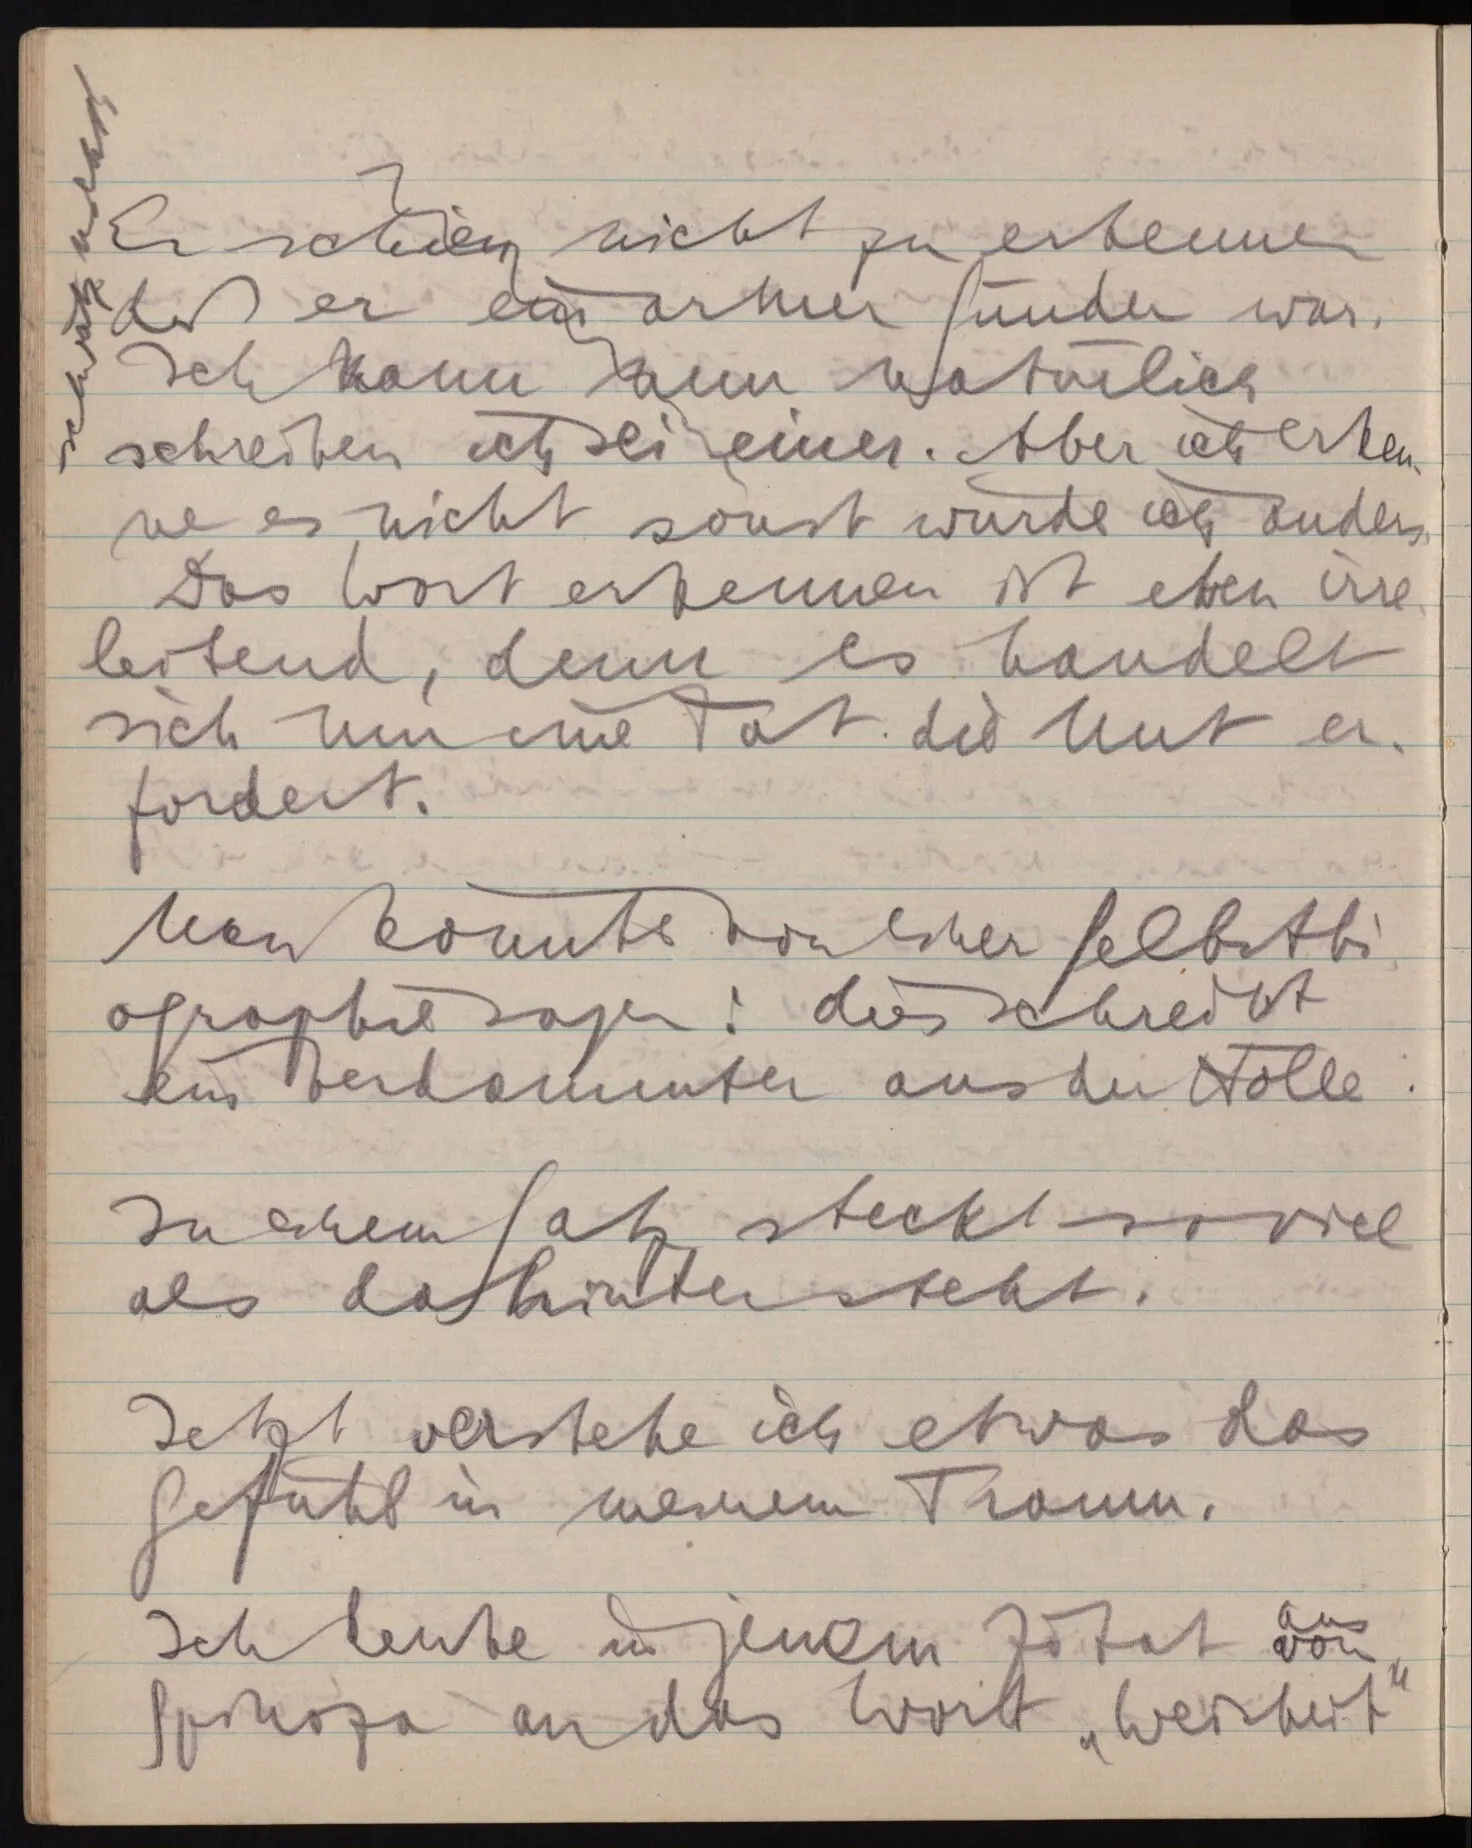 Er schien nicht zu erkennen
daß er ein armer Sünder war.
Ich kann nun natürlich
schreiben ich sei einer. Aber ich erken-
ne es nicht sonst würde ich anders.
Das Wort erkennen ist eben irre
leitend, denn es handelt
sich um eine Tat die Mut er-
fordert.
Man könnte von einer Selbstbi
ographie sagen: dies schreibt
ein Verdammter aus der Hölle.
In einem Satz steckt so viel
als dahinter steht.
Jetzt verstehe ich etwas das
Gefühl in meinem Traum.
Ich denke in jenem Zitat aus
von
Spinoza an das Wort „Weisheit“